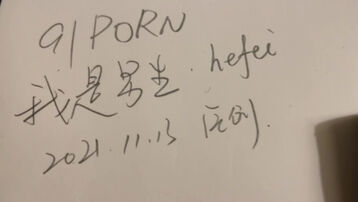 91PORN
我是男生. hefei
2021.11.13